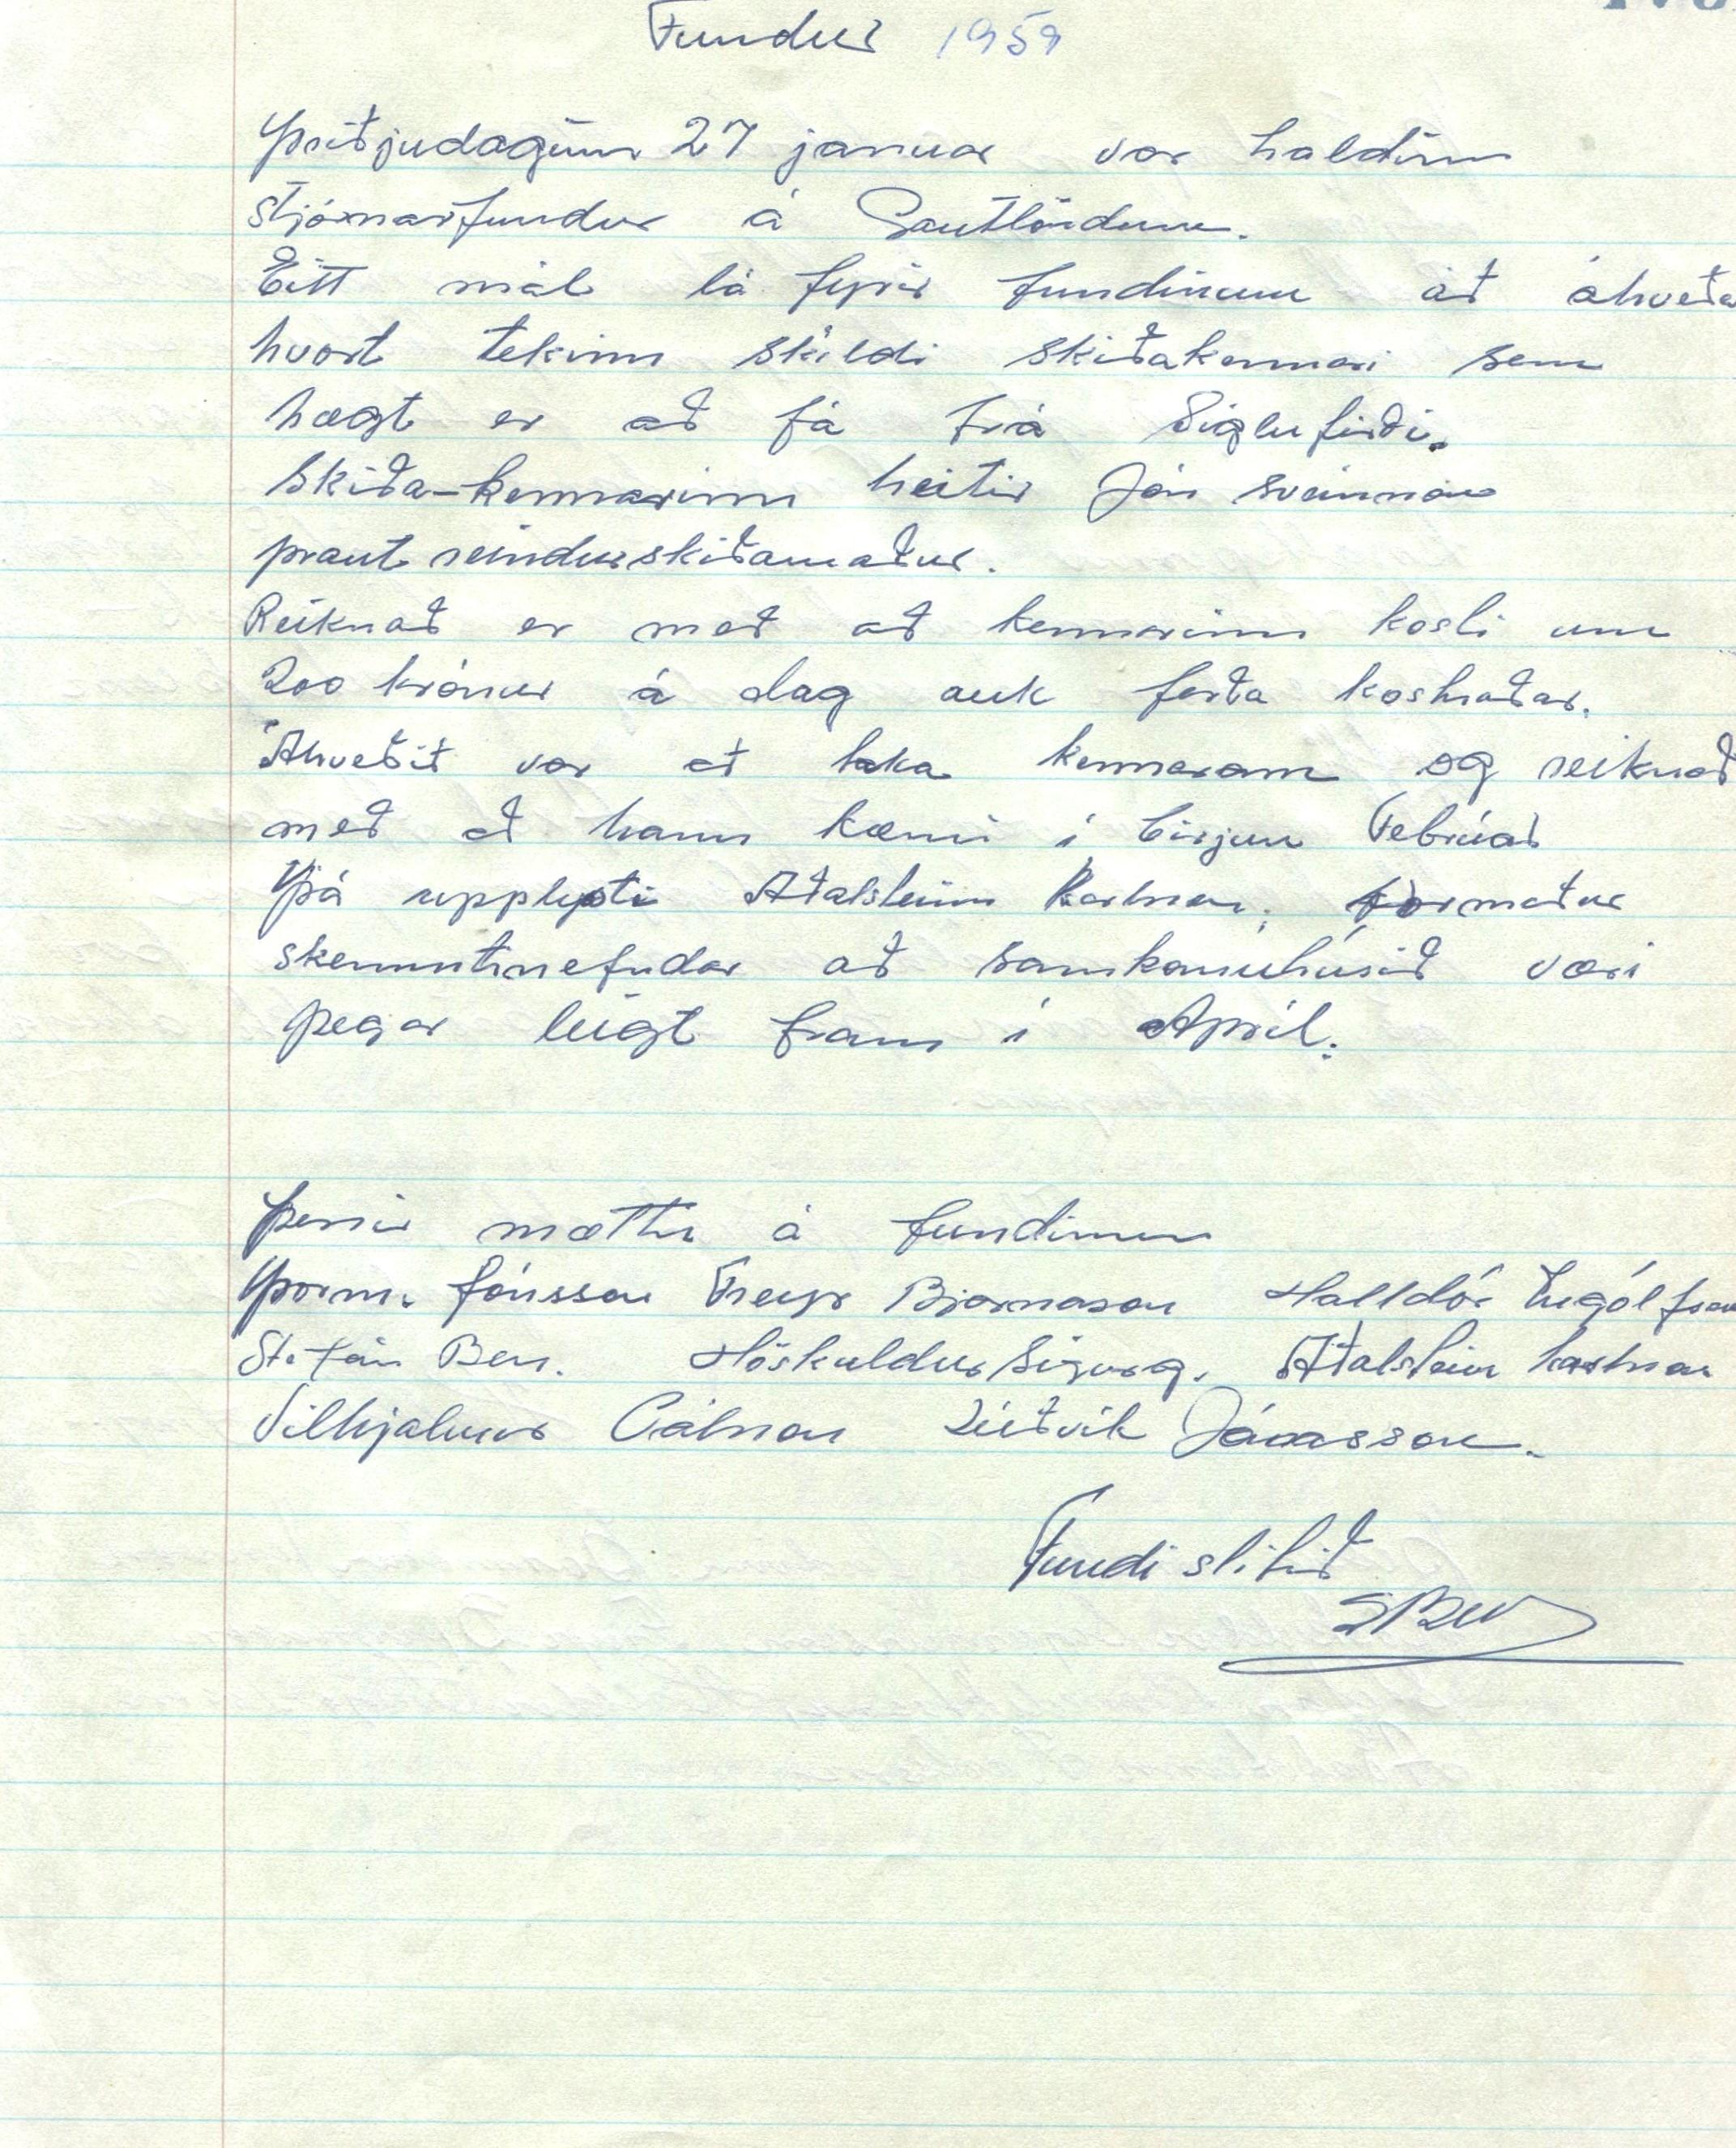 Fundur 1959
Þriðjudaginn 27 januar var haldinn
stjórnarfundur á Gautlöndum.
Eitt mál lá fyrir fundinum að ákveða
hvort tekinn skildi skiðakennari sem
hægt er að fá frá Siglufirði.
Skiða-kennarinn heitir Jón Sveinnson
þraut reindur skiðamaður.
Reiknað er með að kennarinn kosti um
200 krónur á dag auk ferða kostnaðar.
Ákveðið var að taka kennaran og reiknað
með að hann kæmi í birjun Febrúar
Þá upplysti Aðalsteinn Karlsson, formaður
skemmtinefndar að samkomuhúsið væri
þegar leigt fram í April.
Þessir mættu á fundinum
Þorm. Jónsson Freyr Bjarnason Halldór Ingólfsson
Stefán Ben. Höskuldur Sigurg. Aðalsteinn Karlsson
Vilhjalmur Pálsson Lúðvik Jónasson.
Fundi slitið
SBen